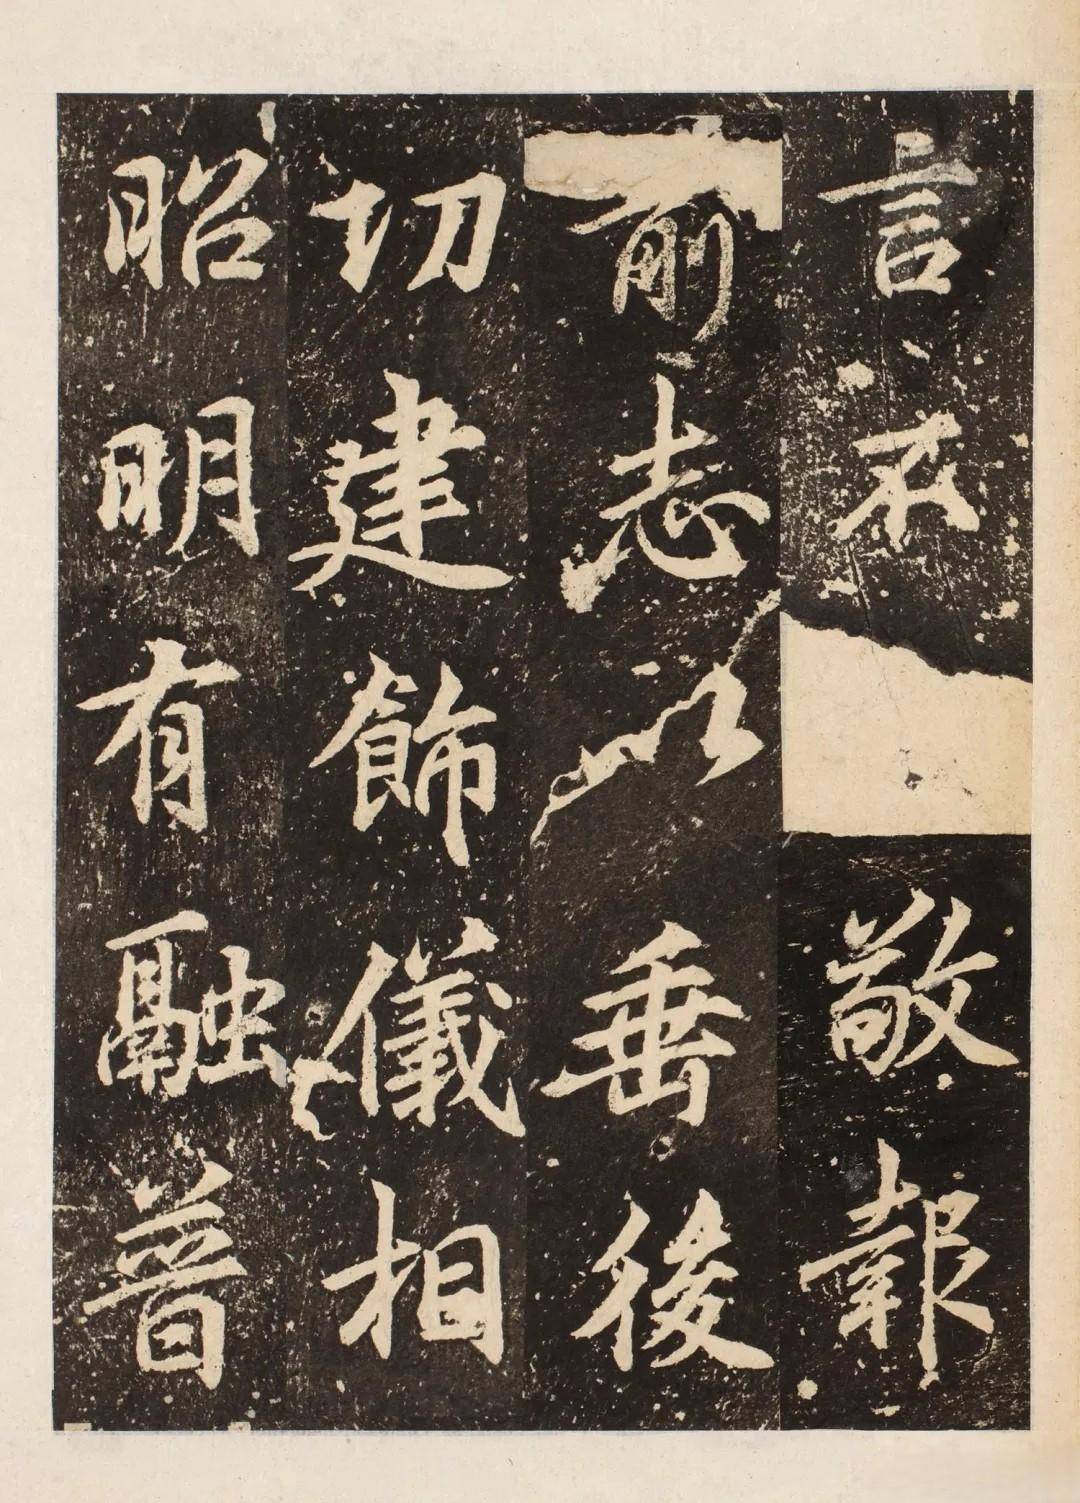 言不敬報
前志以垂後
切建飾儀相
昭明有融普